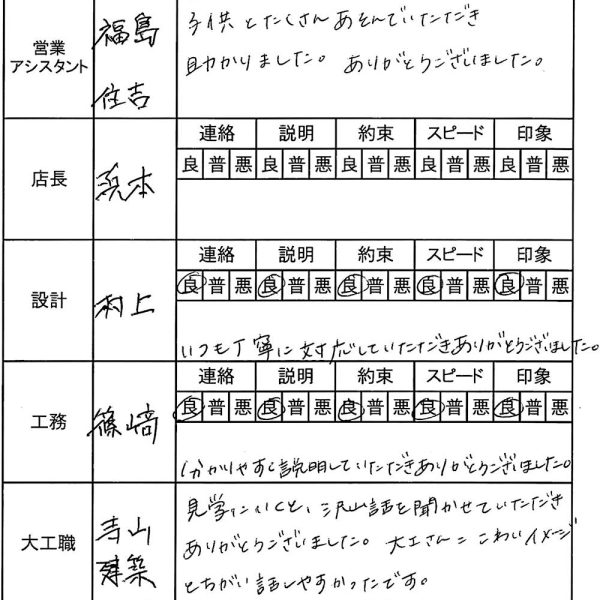 営業
アシスタント
福島
住吉
子供とたくさんあそんでいただき
助かりました。ありがとうございました。
店長
浜本
連絡 説明 約束 スピード 印象
良 普 悪 良 普 悪 良 普 悪 良 普 悪 良 普 悪
設計
村上
連絡 説明 約束 スピード 印象
良 普 悪 良 普 悪 良 普 悪 良 普 悪 良 普 悪
いつも丁寧に対応していただきありがとうございました。
工務
篠﨑
連絡 説明 約束 スピード 印象
良 普 悪 良 普 悪 良 普 悪 良 普 悪 良 普 悪
分かりやすく説明していただきありがとうございました。
大工職
寺山
建築
見学にいくと、沢山話を聞かせていただき
ありがとうございました。大工さん=こわいイメージ
とちがい話しやすかったです。